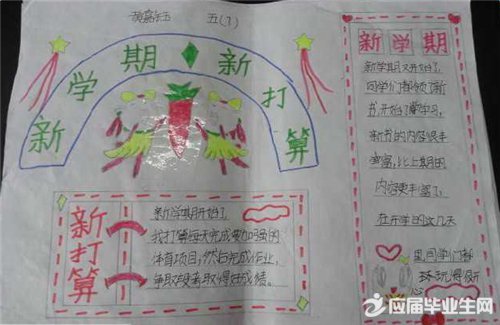 五(1)
新学期新打算
新打算
新学期开始了
我打算每天完成要加强的
体育项目,然后完成作业,
争取段考取得好成绩。
新学期
新学期又开始了
同学们都领了新
书,开始了学习,
新书的内容很丰
富,比上期的
内容要丰富了,
在开学的这几天
里同学们都
玩得很
心
应届毕业生网